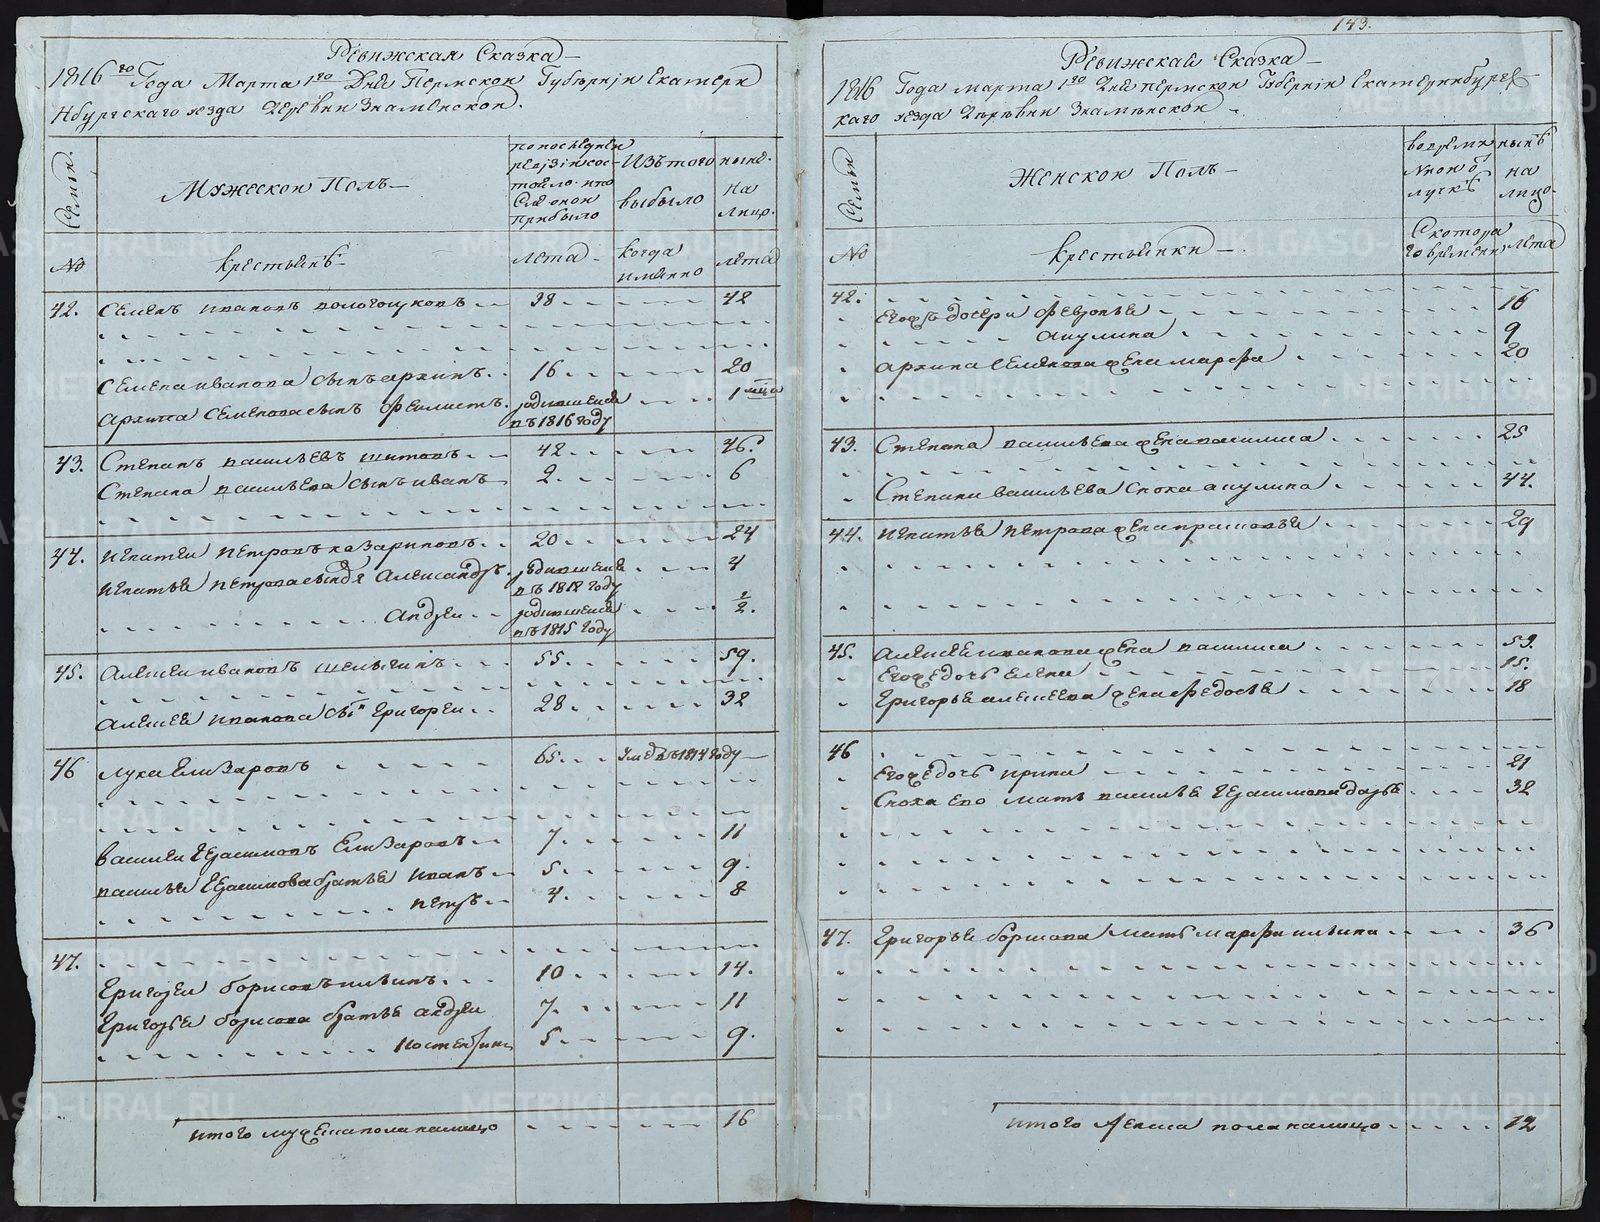 Ревижская Сказка
1816го Года Марта 1го Дня Пермской Губернiи Екатери
нбургскаго уезда Деревни Знаменской.
Семьи.
Мужеской Полъ
по последней ревизiи состояло и после оной прибыло
Изъ того выбыло
ныне на лицо.
No
крестьянъ
лета
когда имянно
лета
42. Семенъ Ивановъ 38 42
Семена Иванова сынъ Архипъ 16 20
Архипа Семенова сынъ Феклистъ родившейся въ 1816 году 1 мца
43. Степанъ Васильевъ Шитовъ 42 46.
Степана Васильева сынъ Иванъ 2 6
44. Игнатей Петровъ Казариновъ 20 24
Игнатья Петрова сынъ 1й Александръ родившейся въ 1812 году 4
Андрей родившейся въ 1815 году 1/2.
45. Алексей Ивановъ 55 59.
Алексея Иванова сынъ Григорей 28 32
46 Лука Елизаровъ 65 умре въ 1814 году
Василей Герасимовъ Елизаровъ 7 11
Василья Герасимова братья Иванъ 5 9.
Петръ 4 8
47.
Григорей Борисовъ Ильинъ 10 14.
Григорья Борисова братья Андрей 7 11
Костентинъ 5 9.
итого мужеска пола налицо 16
143.
Ревижской Сказка
1816 Года марта 1го Дня пермской Губернiи Екатеринбургс
каго уезда Деревни Знаменской
Семьи
Женской Полъ
во временной отлучке
ныне на лицо.
No
крестьянки
С котораго времени
лета
42.
Его дочери Февронья 16
Акулина 9
Архипа Семенова жена Марфа 20
43. Степана Васильева жена Василиса 25
Степана Васильева сноха Акулина 44.
44. Игнатья Петрова жена Прасковья 29
45. Алексея Иванова жена Василиса 59.
Его дочь Елена 15.
Григорья Алексеева жена Федосья 18
46
Его дочь Ирина 21
Сноха его мать Василья Герасимова Дарья 32
47. Григорья Борисова мать Марфа Ильина 36
итого Женска пола налицо 12